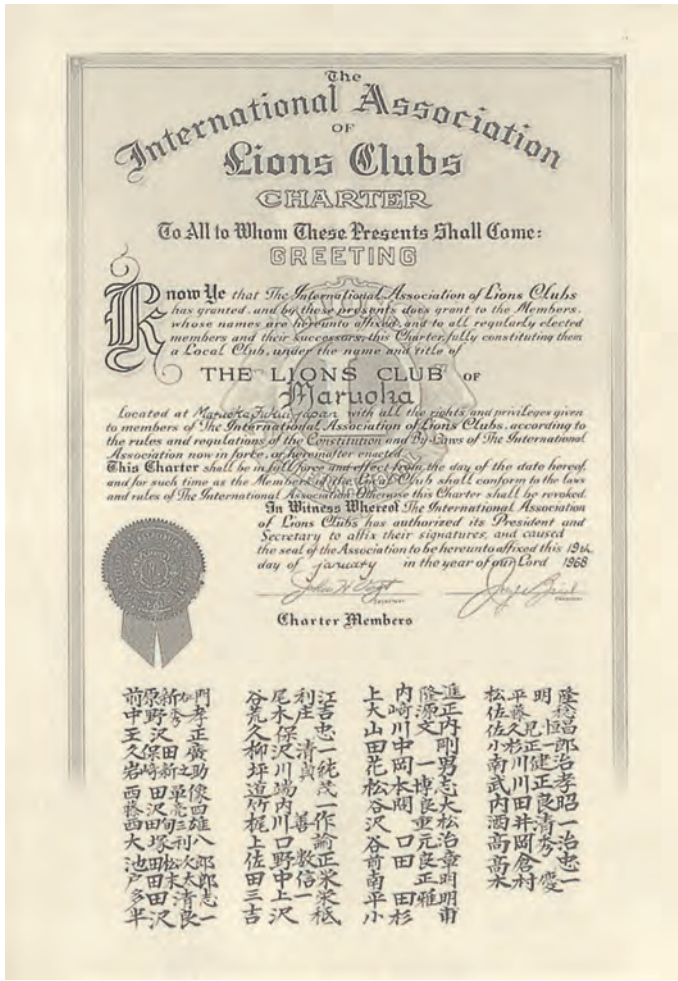 The
International Association
OF
Lions Clubs
CHARTER
To All to Whom These Presents Shall Come:
GREETING
Know Ye that The International Association of Lions Clubs
has granted, and by these presents does grant to the Members,
whose names are hereunto affixed, and to all regularly elected
members and their successors, this Charter, fully constituting them
a Local Club, under the name and title of
THE LIONS CLUB OF
Maruoka
Located at Maruoka, Fukui, Japan with all the rights and privileges given
to members of The International Association of Lions Clubs, according to
the rules and regulations of the Constitution and By-Laws of The International
Association now in force, or hereinafter enacted.
This Charter shall be in full force and effect from the day of the date hereof,
and for such time as the Members of the Local Club shall conform to the laws
and rules of The International Association. Otherwise this Charter shall be revoked.
In Witness Whereof The International Association
of Lions Clubs has authorized its President and
Secretary to affix their signatures, and caused
the seal of the Association to be hereunto affixed this 19th
day of january in the year of our Lord 1968
SECRETARY PRESIDENT
Charter Members
前原新左ヱ門
中野秀孝
王沢正
久保田廣
岩崎新之助
西田単
藤沢亮四
西田旬三雄
大塚利八
池田松次郎
戸田末太郎
多田清志
半沢良一
谷尾利江
荒木庄吉
久保忠
柳沢清一
坪川貞純
道端茂
竹内一
梶川善作
上口諭
佐野数正
田中信栄
三上一栄
吉沢祗
上内隆進
大崎源正
山川文内
田中剛
花岡一男
松本博志
谷口元治
前田良章
南正明
平田雅明
小杉甫
松平明隆
佐藤稔
小杉正一郎
南川健治
武川正孝
内田良昭
酒井清一
高岡秀治
高倉忠
木村慶一